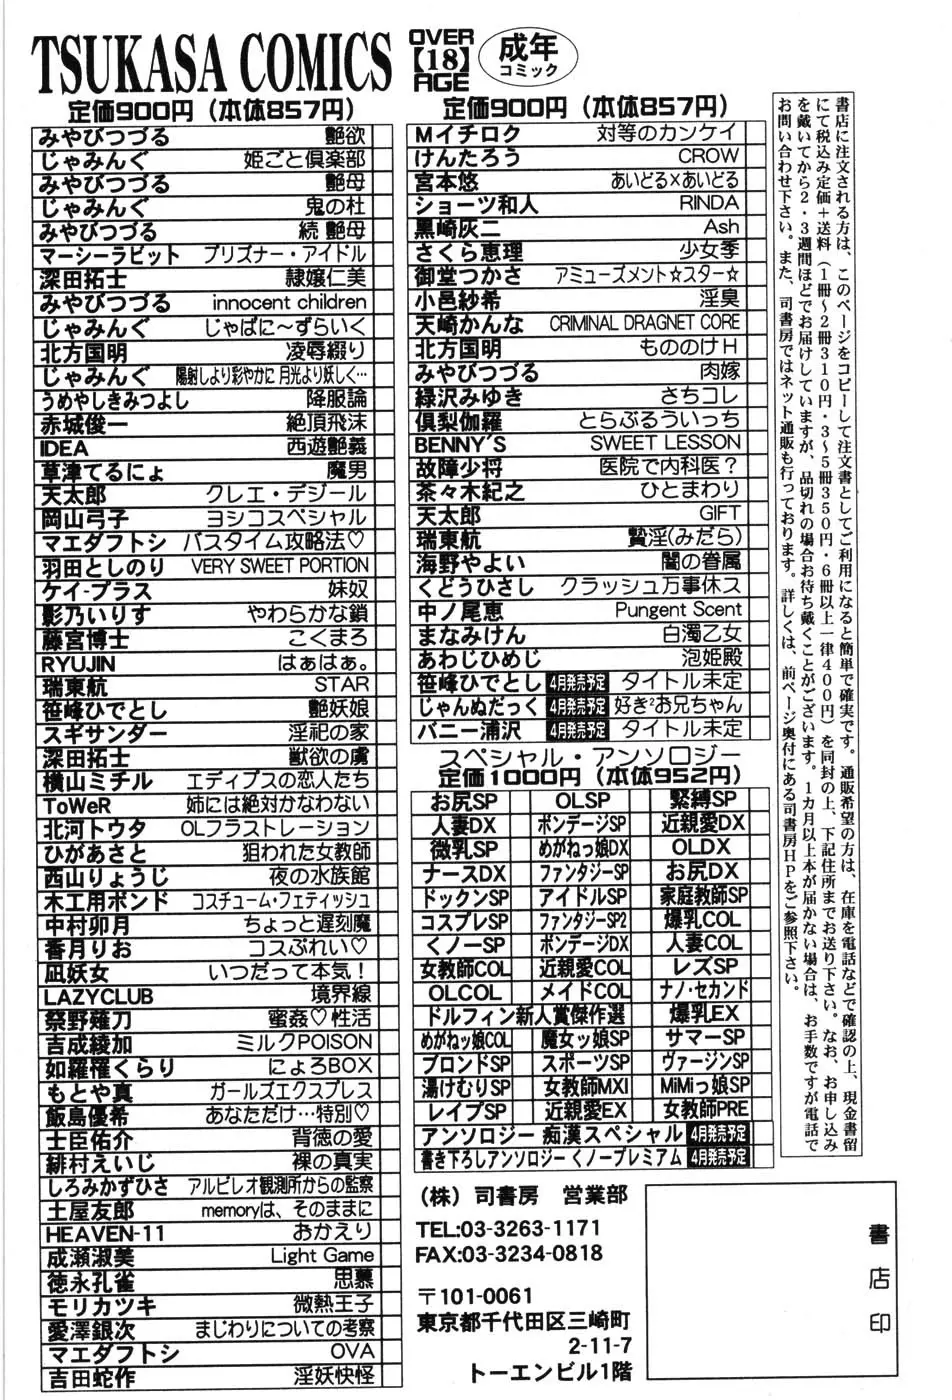 TSUKASA COMICS
OVER
【18】
AGE
成年
コミック
定価900円（本体857円）
みやびつづる 艶欲
じゃみんぐ 姫ごと倶楽部
みやびつづる 艶母
じゃみんぐ 鬼の杜
みやびつづる 続 艶母
マーシーラビット プリズナー・アイドル
深田拓士 隷嬢仁美
みやびつづる innocent children
じゃみんぐ じゃぱに〜ずらいく
北方国明 凌辱綴り
じゃみんぐ 陽射しより彩やかに 月光より妖しく…
うめやしきみつよし 降服論
赤城俊一 絶頂飛沫
IDEA 西遊艶義
草津てるにょ 魔男
天太郎 クレエ・デジール
岡山弓子 ヨシコスペシャル
マエダフトシ バスタイム攻略法♡
羽田としのり VERY SWEET PORTION
ケイ-プラス 妹奴
影乃いりす やわらかな鎖
藤宮博士 こくまろ
RYUJIN はぁはぁ。
瑞東航 STAR
笹峰ひでとし 艶妖娘
スギサンダー 淫祀の家
深田拓士 獣欲の虜
横山ミチル エディプスの恋人たち
ToWeR 姉には絶対かなわない
北河トウタ OLフラストレーション
ひがあさと 狙われた女教師
西山りょうじ 夜の水族館
木工用ボンド コスチューム・フェティッシュ
中村卯月 ちょっと遅刻魔
香月りお コスぷれい♡
凪妖女 いつだって本気！
LAZYCLUB 境界線
祭野薙刀 蜜姦♡性活
吉成綾加 ミルクPOISON
如羅羅くらり にょろBOX
もとや真 ガールズエクスプレス
飯島優希 あなただけ…特別♡
士臣佑介 背徳の愛
緋村えいじ 裸の真実
しろみかずひさ アルビレオ観測所からの監察
土屋友郎 memoryは、そのままに
HEAVEN-11 おかえり
成瀬淑美 Light Game
徳永孔雀 思慕
モリカツキ 微熱王子
愛澤銀次 まじわりについての考察
マエダフトシ OVA
吉田蛇作 淫妖快怪
定価900円（本体857円）
Mイチロク 対等のカンケイ
けんたろう CROW
宮本悠 あいどる×あいどる
ショーツ和人 RINDA
黒崎灰二 Ash
さくら恵理 少女季
御堂つかさ アミューズメント☆スター☆
小邑紗希 淫臭
天崎かんな CRIMINAL DRAGNET CORE
北方国明 もののけH
みやびつづる 肉嫁
緑沢みゆき さちコレ
倶梨伽羅 とらぶるういっち
BENNY'S SWEET LESSON
故障少将 医院で内科医？
茶々木紀之 ひとまわり
天太郎 GIFT
瑞東航 贄淫（みだら）
海野やよい 闇の眷属
くどうひさし クラッシュ万事休ス
中ノ尾恵 Pungent Scent
まなみけん 白濁乙女
あわじひめじ 泡姫殿
笹峰ひでとし 4月発売予定 タイトル未定
じゃんぬだっく 4月発売予定 好き²お兄ちゃん
バニー浦沢 4月発売予定 タイトル未定
スペシャル・アンソロジー
定価1000円（本体952円）
お尻SP OLSP 緊縛SP
人妻DX ボンデージSP 近親愛DX
微乳SP めがねっ娘DX OLDX
ナースDX ファンタジーSP お尻DX
ドックンSP アイドルSP 家庭教師SP
コスプレSP ファンタジーSP2 爆乳COL
くノーSP ボンデージDX 人妻COL
女教師COL 近親愛COL レズSP
OLCOL メイドCOL ナノ・セカンド
ドルフィン新人賞傑作選 爆乳EX
めがねッ娘COL 魔女ッ娘SP サマーSP
ブロンドSP スポーツSP ヴァージンSP
湯けむりSP 女教師MXI MiMiっ娘SP
レイプSP 近親愛EX 女教師PRE
アンソロジー 痴漢スペシャル 4月発売予定
書き下ろしアンソロジーくノ一プレミアム 4月発売予定
書店に注文される方は、このページをコピーして注文書としてご利用になると簡単で確実です。通販希望の方は、在庫を電話などで確認の上、現金書留
にて税込み定価＋送料（1冊〜2冊310円・3〜5冊350円・6冊以上一律400円）を同封の上、下記住所までお送り下さい。なお、お申し込み
を戴いてから2・3週間ほどでお届けしていますが、品切れの場合お待ち戴くことがございます。1カ月以上本が届かない場合は、お手数ですが電話で
お問い合わせ下さい。また、司書房ではネット通販も行っております。詳しくは、前ページ奥付にある司書房HPをご参照下さい。
（株）司書房 営業部
TEL:03-3263-1171
FAX:03-3234-0818
〒101-0061
東京都千代田区三崎町
2-11-7
トーエンビル1階
書店印